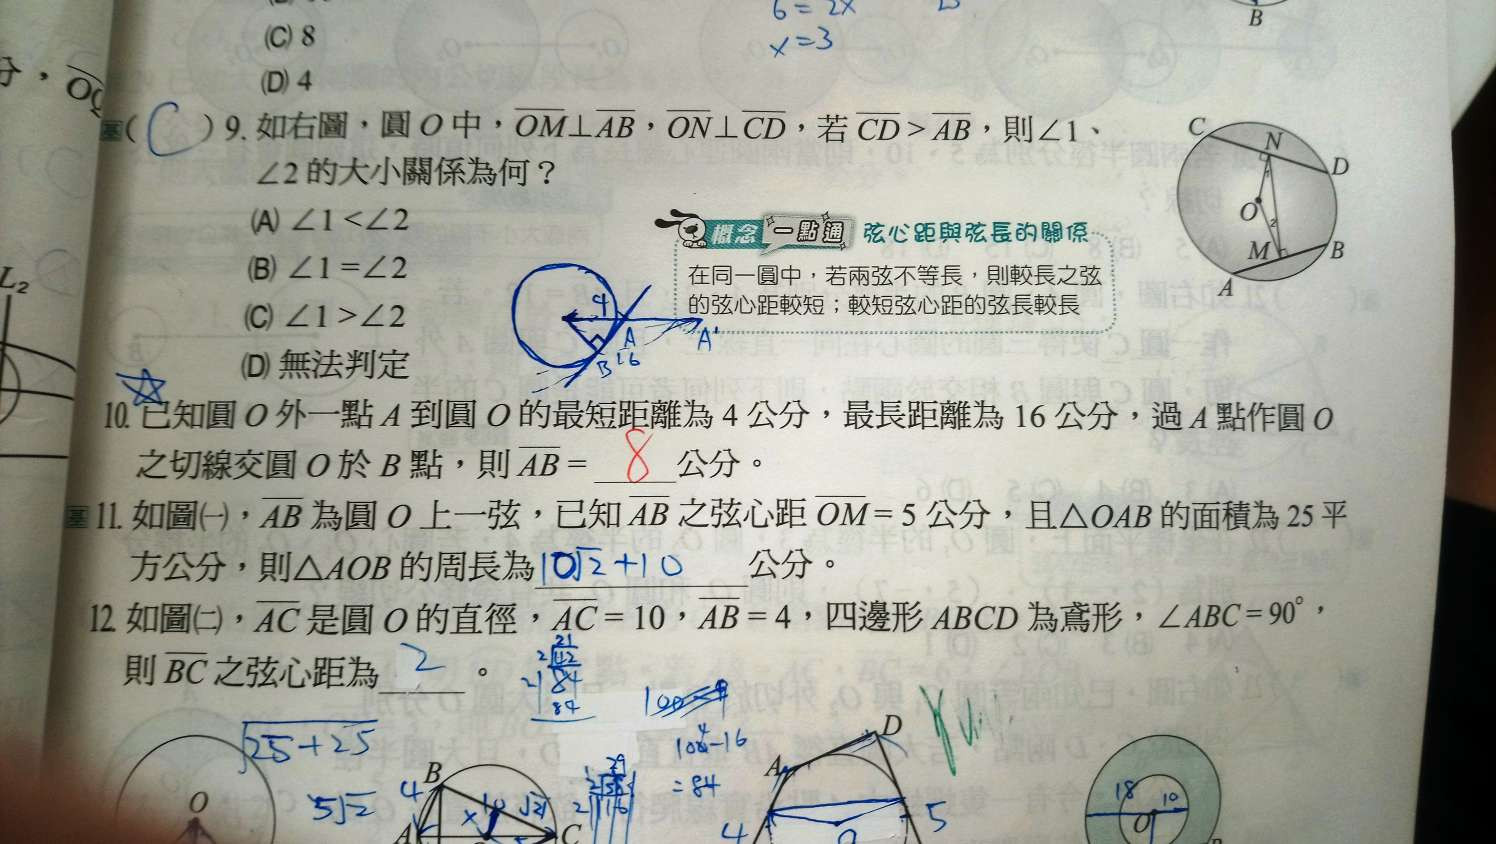 6 = 2x
x = 3
B
(C) 8
(D) 4
分，OQ
基( C ) 9. 如右圖，圓 O 中，OM⊥AB，ON⊥CD，若 CD > AB，則∠1、
∠2 的大小關係為何？
(A) ∠1 <∠2
(B) ∠1 =∠2
(C) ∠1 >∠2
(D) 無法判定
C N D
1
O
2
M B
A
概念一點通 弦心距與弦長的關係
在同一圓中，若兩弦不等長，則較長之弦
的弦心距較短；較短弦心距的弦長較長
4
A A'
B 16
L2
10. 已知圓 O 外一點 A 到圓 O 的最短距離為 4 公分，最長距離為 16 公分，過 A 點作圓 O
之切線交圓 O 於 B 點，則 AB = 8 公分。
基 11. 如圖㈠，AB 為圓 O 上一弦，已知 AB 之弦心距 OM = 5 公分，且△OAB 的面積為 25 平
方公分，則△AOB 的周長為 10√2+10 公分。
12. 如圖㈡，AC 是圓 O 的直徑，AC = 10，AB = 4，四邊形 ABCD 為鳶形，∠ABC = 90°，
則 BC 之弦心距為 2 。
21
2 42
2 84
84
√25+25
5√2
O
B
4
x 10 √21
A C
100-16
= 84
D
A
4 5
18 10
O